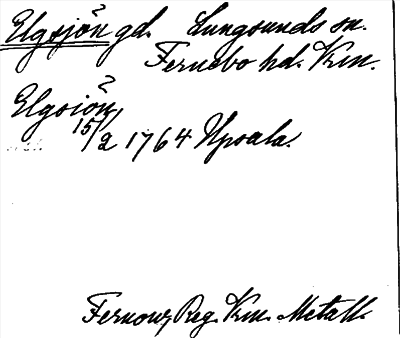 Elgsjön? gd. Lungsunds sn.
Fernebo hd. Krm.
Elgsiön?
15/2 1764 Upsala.
Fernow, Reg. Krm. Metall.